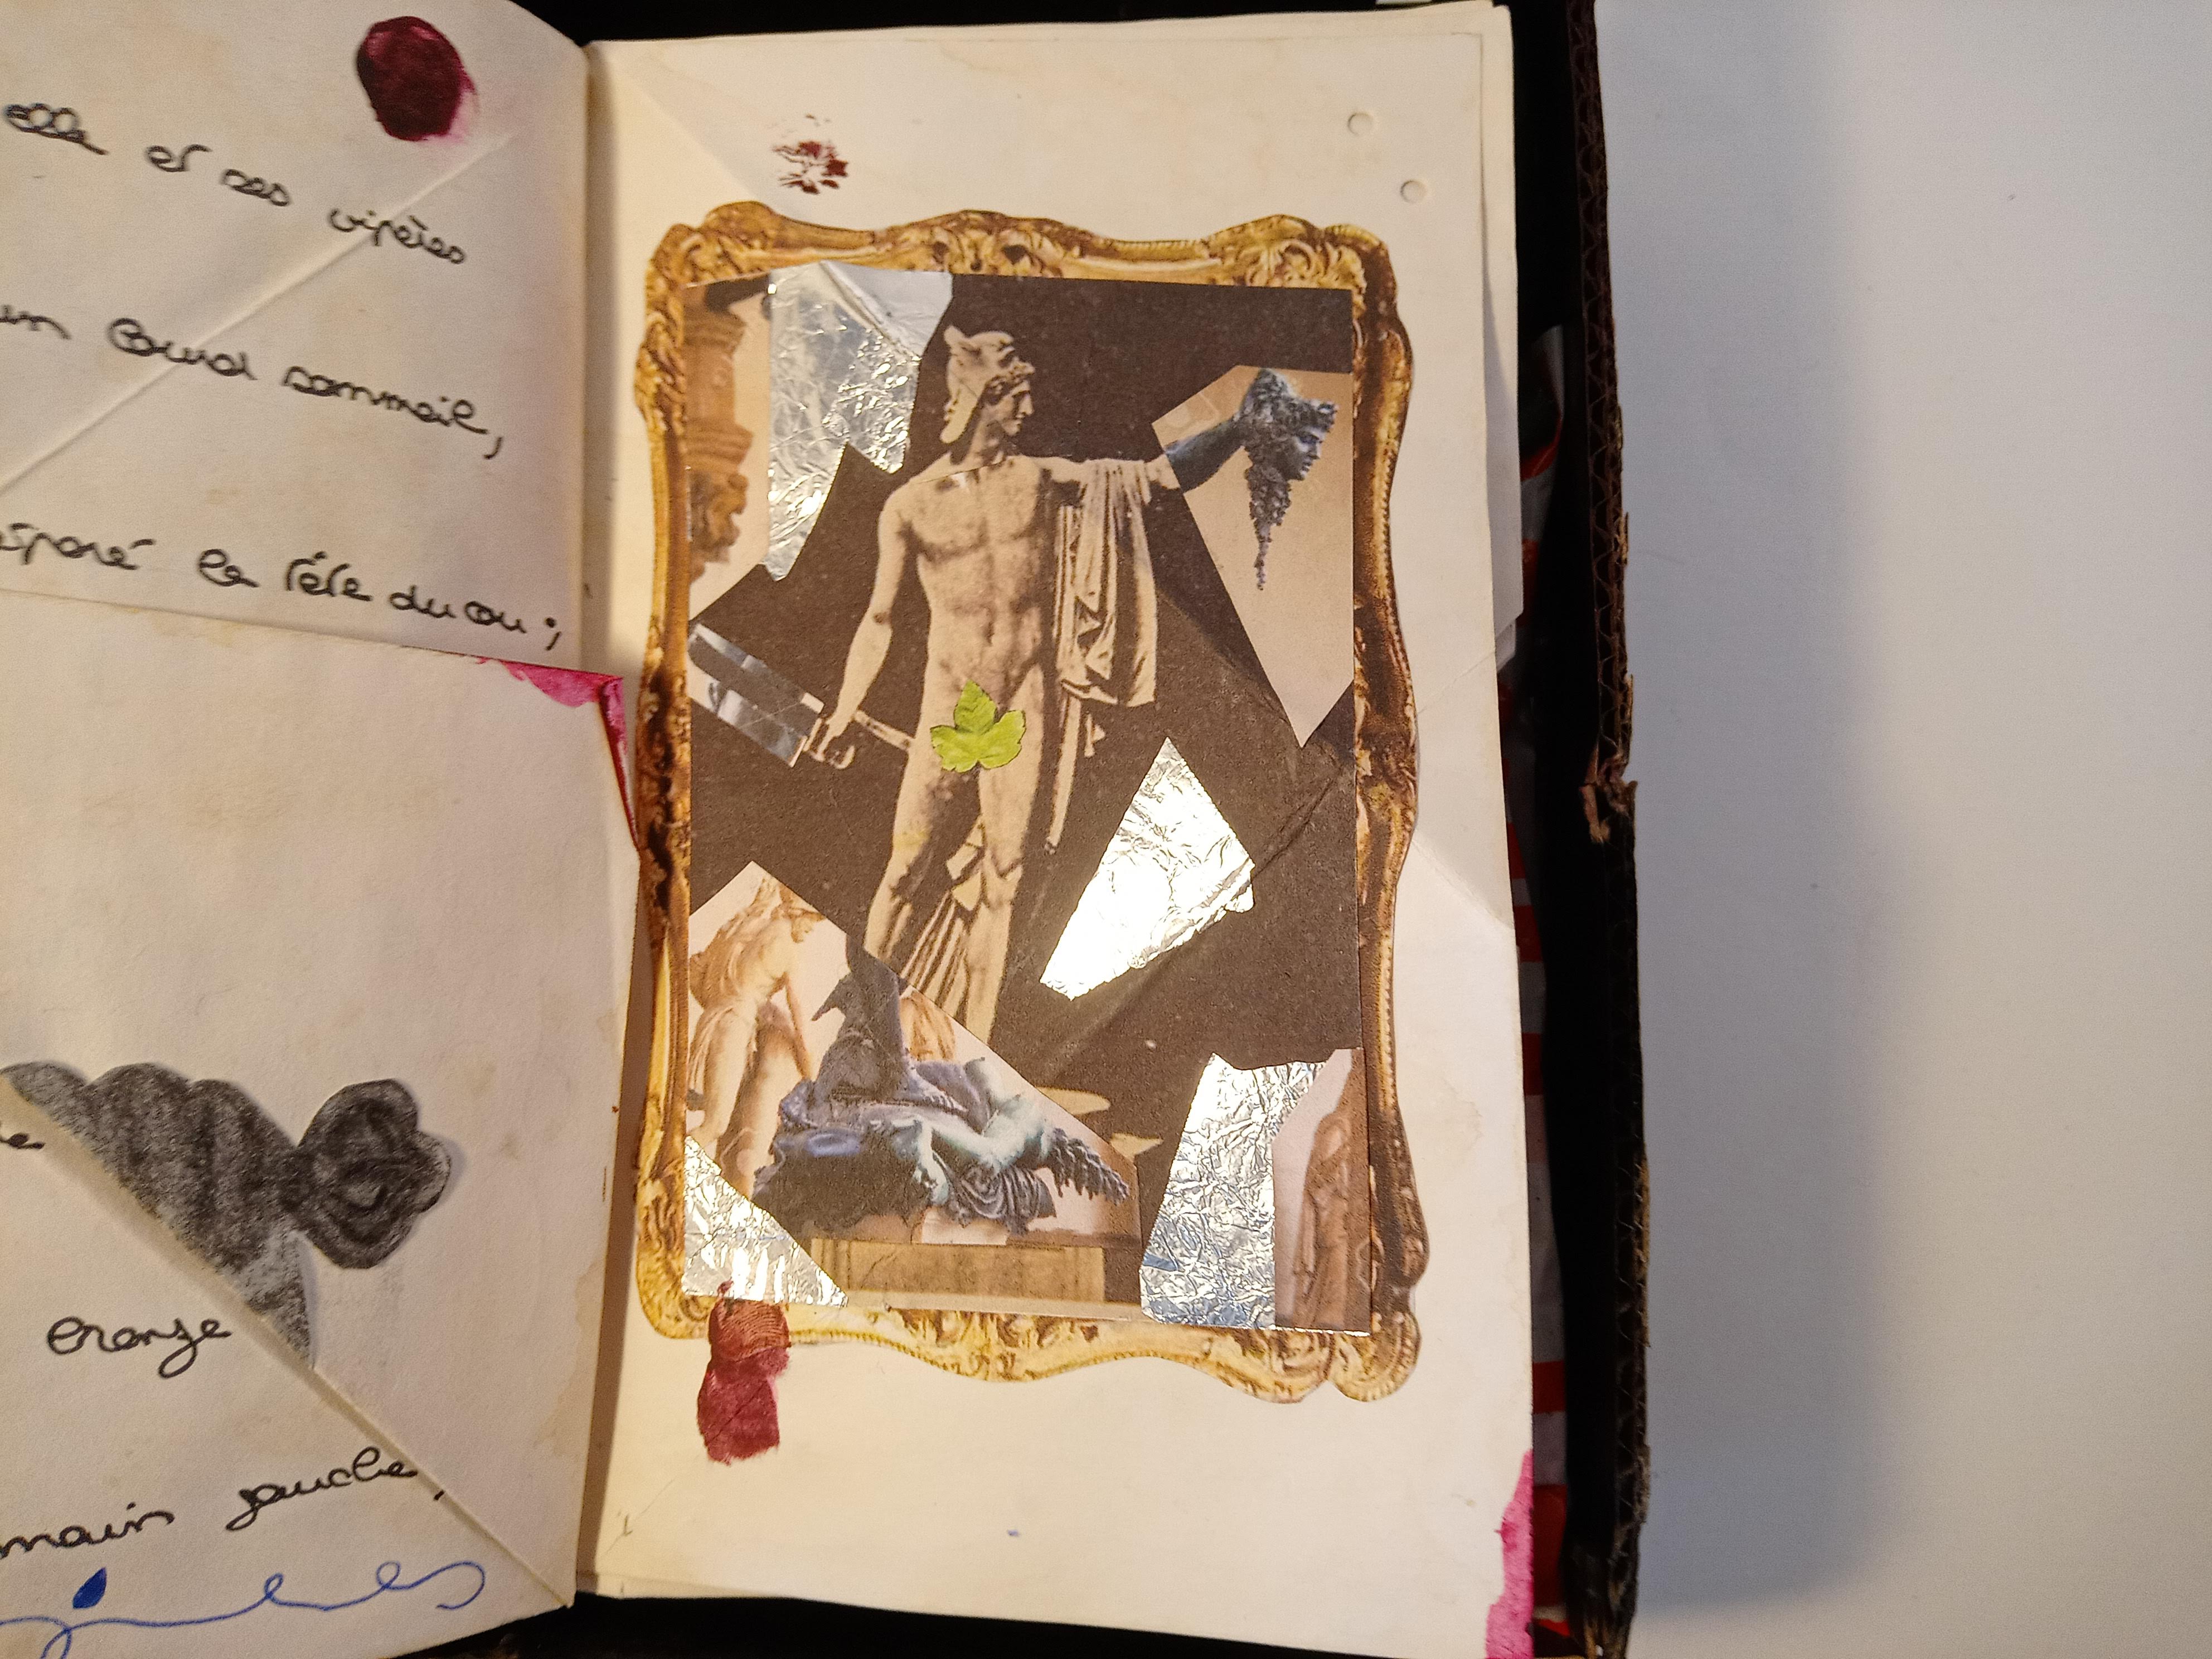 elle et ses vipères
un lourd sommeil,
séparé la tête du cou ;
crange
main gauche,